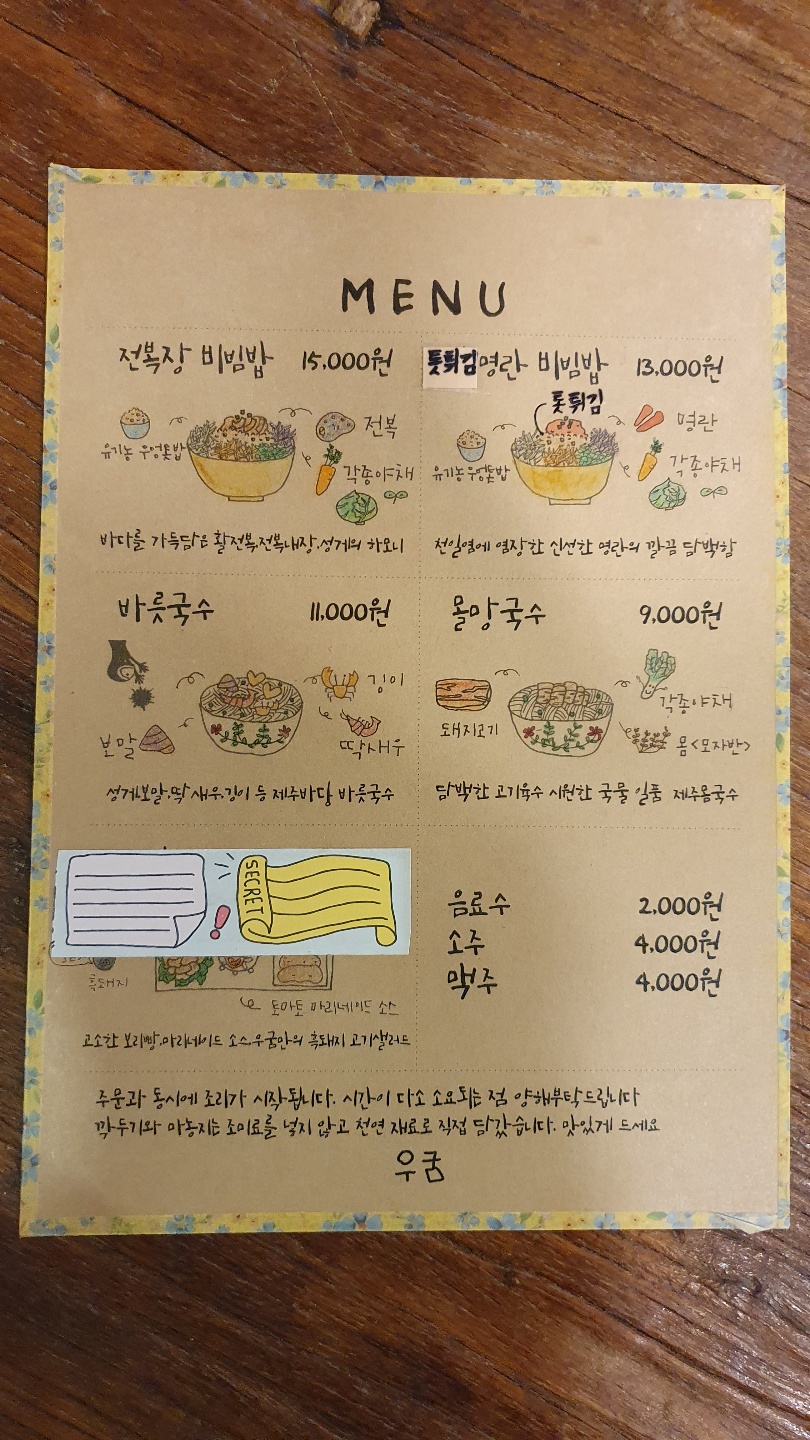 MENU
전복장 비빔밥 15,000원
유기농 우엉톳밥
전복
각종야채
바다를 가득담은 활전복,전복내장,성게의 하모니
톳튀김명란 비빔밥 13,000원
톳튀김
명란
유기농우엉톳밥
각종야채
천일염에 염장한 신선한 명란의 깔끔 담백함
바릇국수 11,000원
깅이
보말
딱새우
성게,보말,딱새우,깅이 등 제주바당 바릇국수
몰망국수 9,000원
돼지고기
각종야채
몸<모자반>
담백한 고기육수 시원한 국물 일품 제주몸국수
SECRET
흑돼지
토마토 마리네이드 소스
고소한 보리빵,마리네이드 소스,우굼만의 흑돼지 고기샐러드
음료수 2,000원
소주 4,000원
맥주 4,000원
주문과 동시에 조리가 시작됩니다. 시간이 다소 소요되는 점 양해부탁드립니다
깍두기와 마농지는 조미료를 넣지 않고 천연 재료로 직접 담갔습니다. 맛있게 드세요
우굼